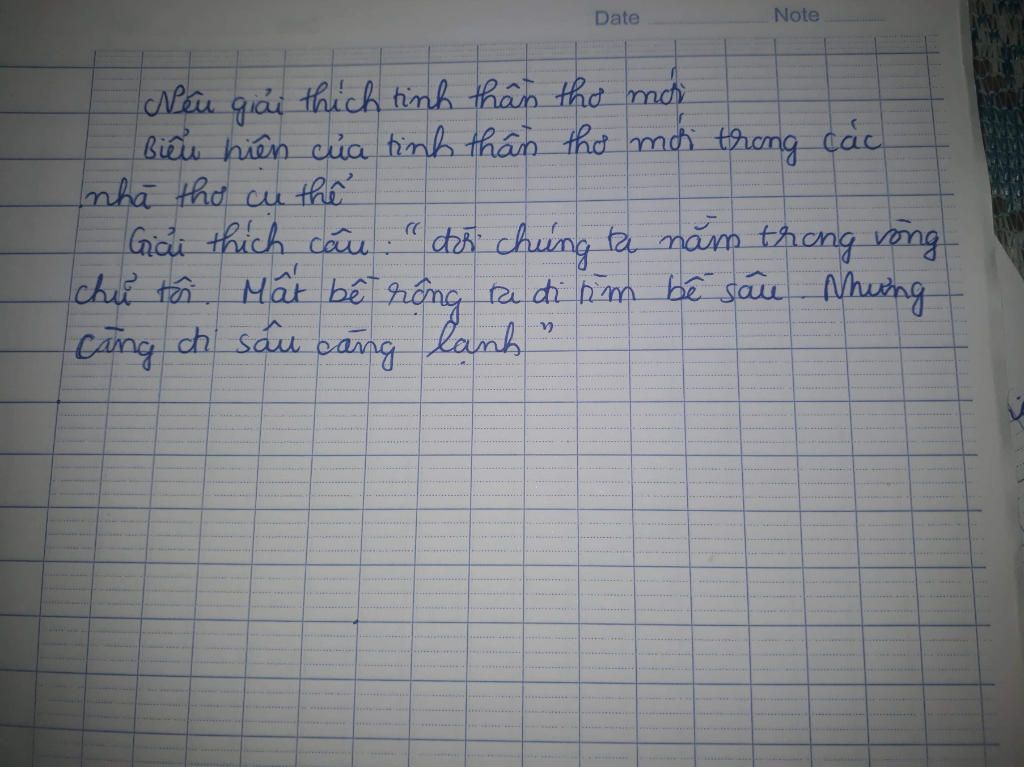 Date Note
Nêu giải thích tinh thần thơ mới
Biểu hiện của tinh thần thơ mới trong các
nhà thơ cụ thể
Giải thích câu: "đời chúng ta nằm trong vòng
chữ tôi. Mất bề rộng ta đi tìm bề sâu. Nhưng
càng đi sâu càng lạnh"